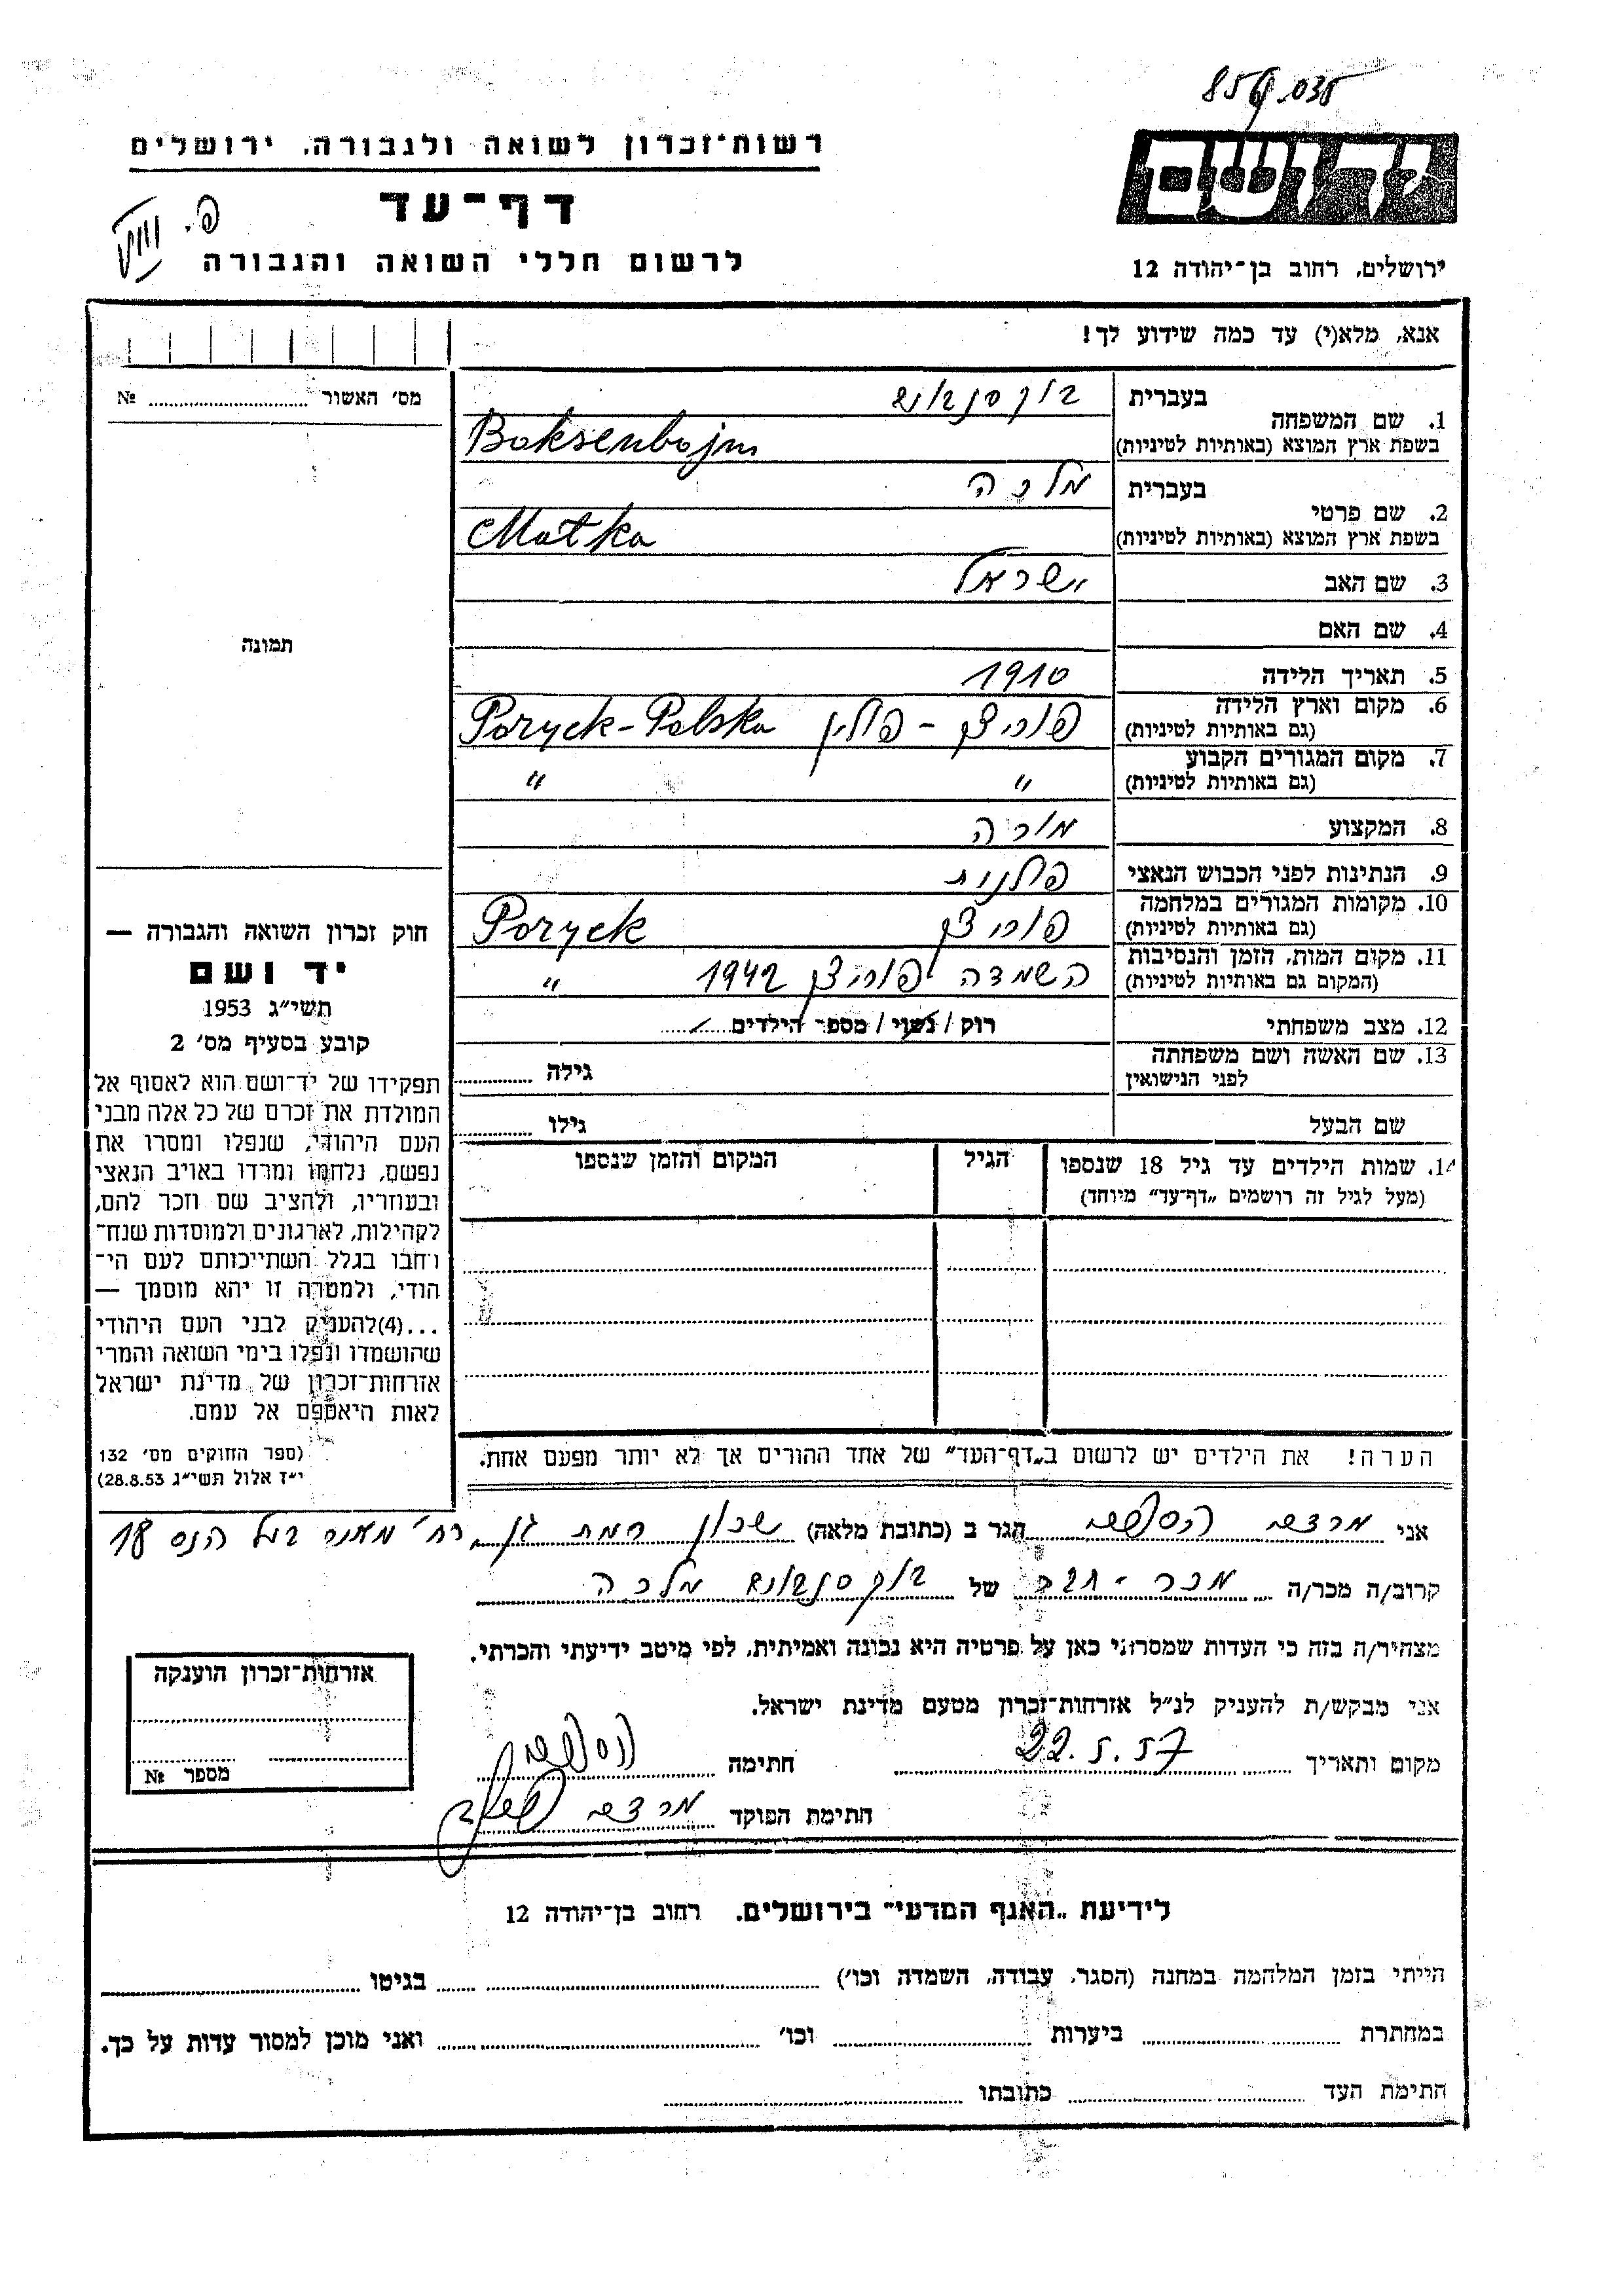 רשות־זכרון לשואה ולגבורה, ירושלים
דף־עד
לרשום חללי השואה והגבורה
יד ושם
ירושלים, רחוב בן־יהודה 12
אנא, מלא(י) עד כמה שידוע לך!
מס' האשור № ..........
1. שם המשפחה
בעברית
בשפת ארץ המוצא (באותיות לטיניות)
Boksenbojm
2. שם פרטי
בעברית מלכה
בשפת ארץ המוצא (באותיות לטיניות)
Małka
3. שם האב ישראל
4. שם האם
5. תאריך הלידה 1910
6. מקום וארץ הלידה
(גם באותיות לטיניות)
פוריצק - פולין Poryck - Polska
7. מקום המגורים הקבוע
(גם באותיות לטיניות)
" "
8. המקצוע מורה
9. הנתינות לפני הכבוש הנאצי פולנית
10. מקומות המגורים במלחמה
(גם באותיות לטיניות)
פוריצק Poryck
11. מקום המות, הזמן והנסיבות
(המקום גם באותיות לטיניות)
השמדה פוריצק 1942 "
12. מצב משפחתי רוק / נשוי / מספר הילדים
13. שם האשה ושם משפחתה
לפני הנישואין
גילה
שם הבעל גילו
14. שמות הילדים עד גיל 18 שנספו
(מעל לגיל זה רושמים „דף־עד" מיוחד)
הגיל
המקום והזמן שנספו
תמונה
חוק זכרון השואה והגבורה —
יד ושם
תשי"ג 1953
קובע בסעיף מס' 2
תפקידו של יד־ושם הוא לאסוף אל
המולדת את זכרם של כל אלה מבני
העם היהודי, שנפלו ומסרו את
נפשם, נלחמו ומרדו באויב הנאצי
ובעוזריו, ולהציב שם וזכר להם,
לקהילות, לארגונים ולמוסדות שנח־
רחבו בגלל השתייכותם לעם הי־
הודי, ולמטרה זו יהא מוסמך —
...(4)להעניק לבני העם היהודי
שהושמדו ונפלו בימי השואה והמרי
אזרחות־זכרון של מדינת ישראל
לאות היאספם אל עמם.
(ספר החוקים מס' 132
י"ז אלול תשי"ג 28.8.53)
הערה! את הילדים יש לרשום ב„דף־העד" של אחד ההורים אך לא יותר מפעם אחת.
אני מרדכי הגר ב (כתובת מלאה) שכון רמת גן, רח' הנס 18
קרוב/ה מכר/ה מכר של מלכה
מצהיר/ה בזה כי העדות שמסרתי כאן על פרטיה היא נכונה ואמיתית, לפי מיטב ידיעתי והכרתי.
אני מבקש/ת להעניק לנ"ל אזרחות־זכרון מטעם מדינת ישראל.
מקום ותאריך 22.5.57 חתימה
חתימת הפוקד מרדכי
אזרחות־זכרון הוענקה
מספר №
לידיעת „האגף המדעי" בירושלים. רחוב בן־יהודה 12
הייתי בזמן המלחמה במחנה (הסגר, עבודה, השמדה וכו') בגיטו
במחתרת ביערות וכו' ואני מוכן למסור עדות על כך.
חתימת העד כתובתו